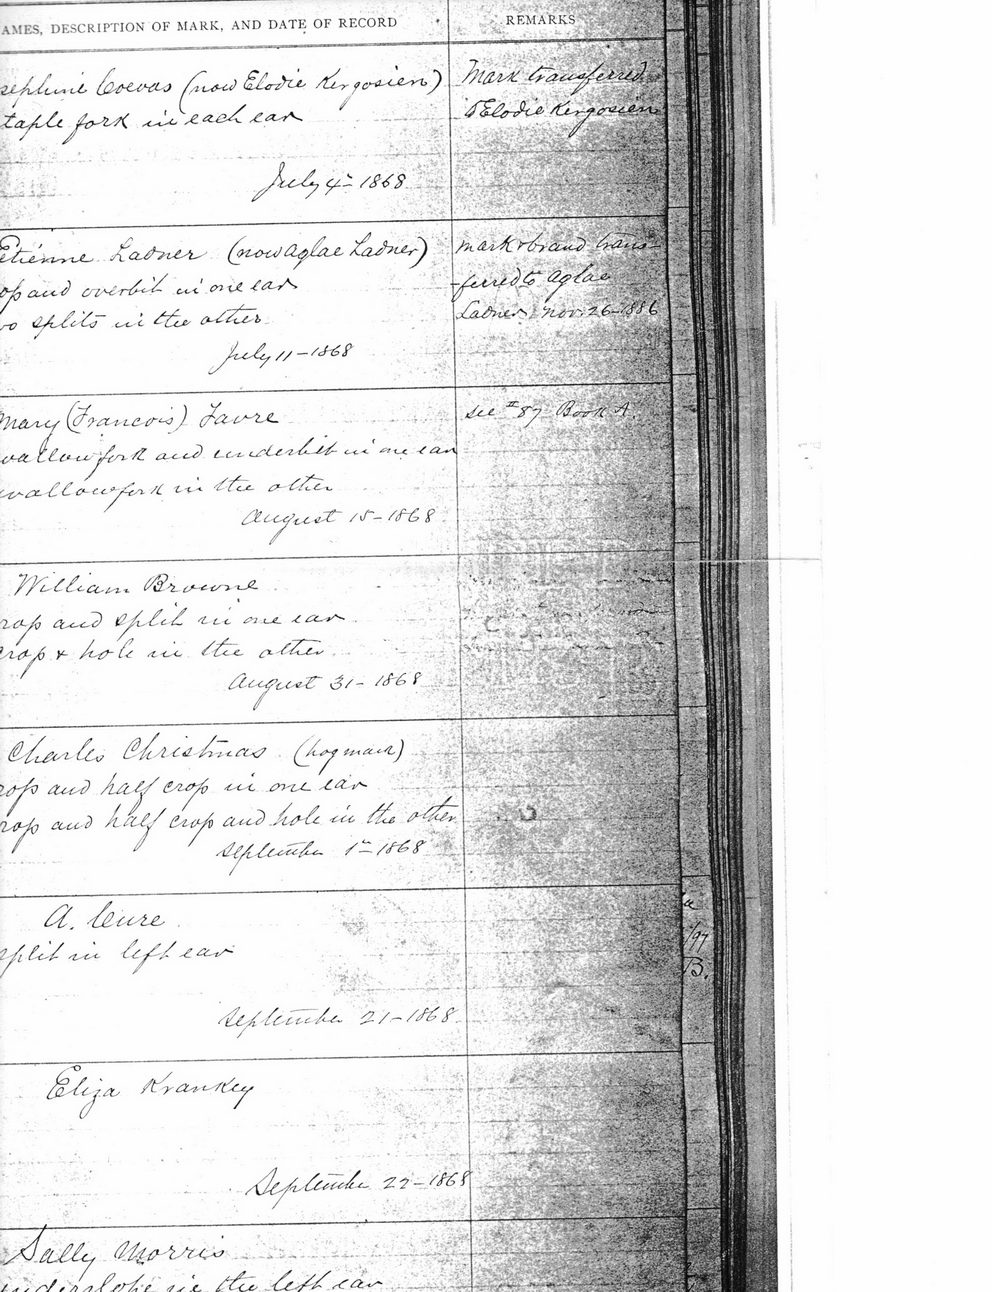 AMES, DESCRIPTION OF MARK, AND DATE OF RECORD
REMARKS
sephine Coevas (now Elodie Kergosien)
taple fork in each ear
July 4th 1868
Mark transferred
to Elodie Kergosien
Etienne Ladner (now Aglae Ladner)
op and overbit in one ear
wo splits in the other
July 11-1868
mark & brand trans-
-ferred to Aglae
Ladner Nov. 26-1886
Mary (Francois) Favre
wallowfork and underbit in one ear
wallowfork in the other
August 15-1868
see # 87 Book A.
William Browne
rop and split in one ear
crop & hole in the other
August 31-1868
Charles Christmas (hogman)
rop and half crop in one ear
rop and half crop and hole in the other
September 1st-1868
A. Cure
split in left ear
September 21-1868
/97
B.
Eliza Krankey
September 22-1868
Sally Morris
underslope in the left ear